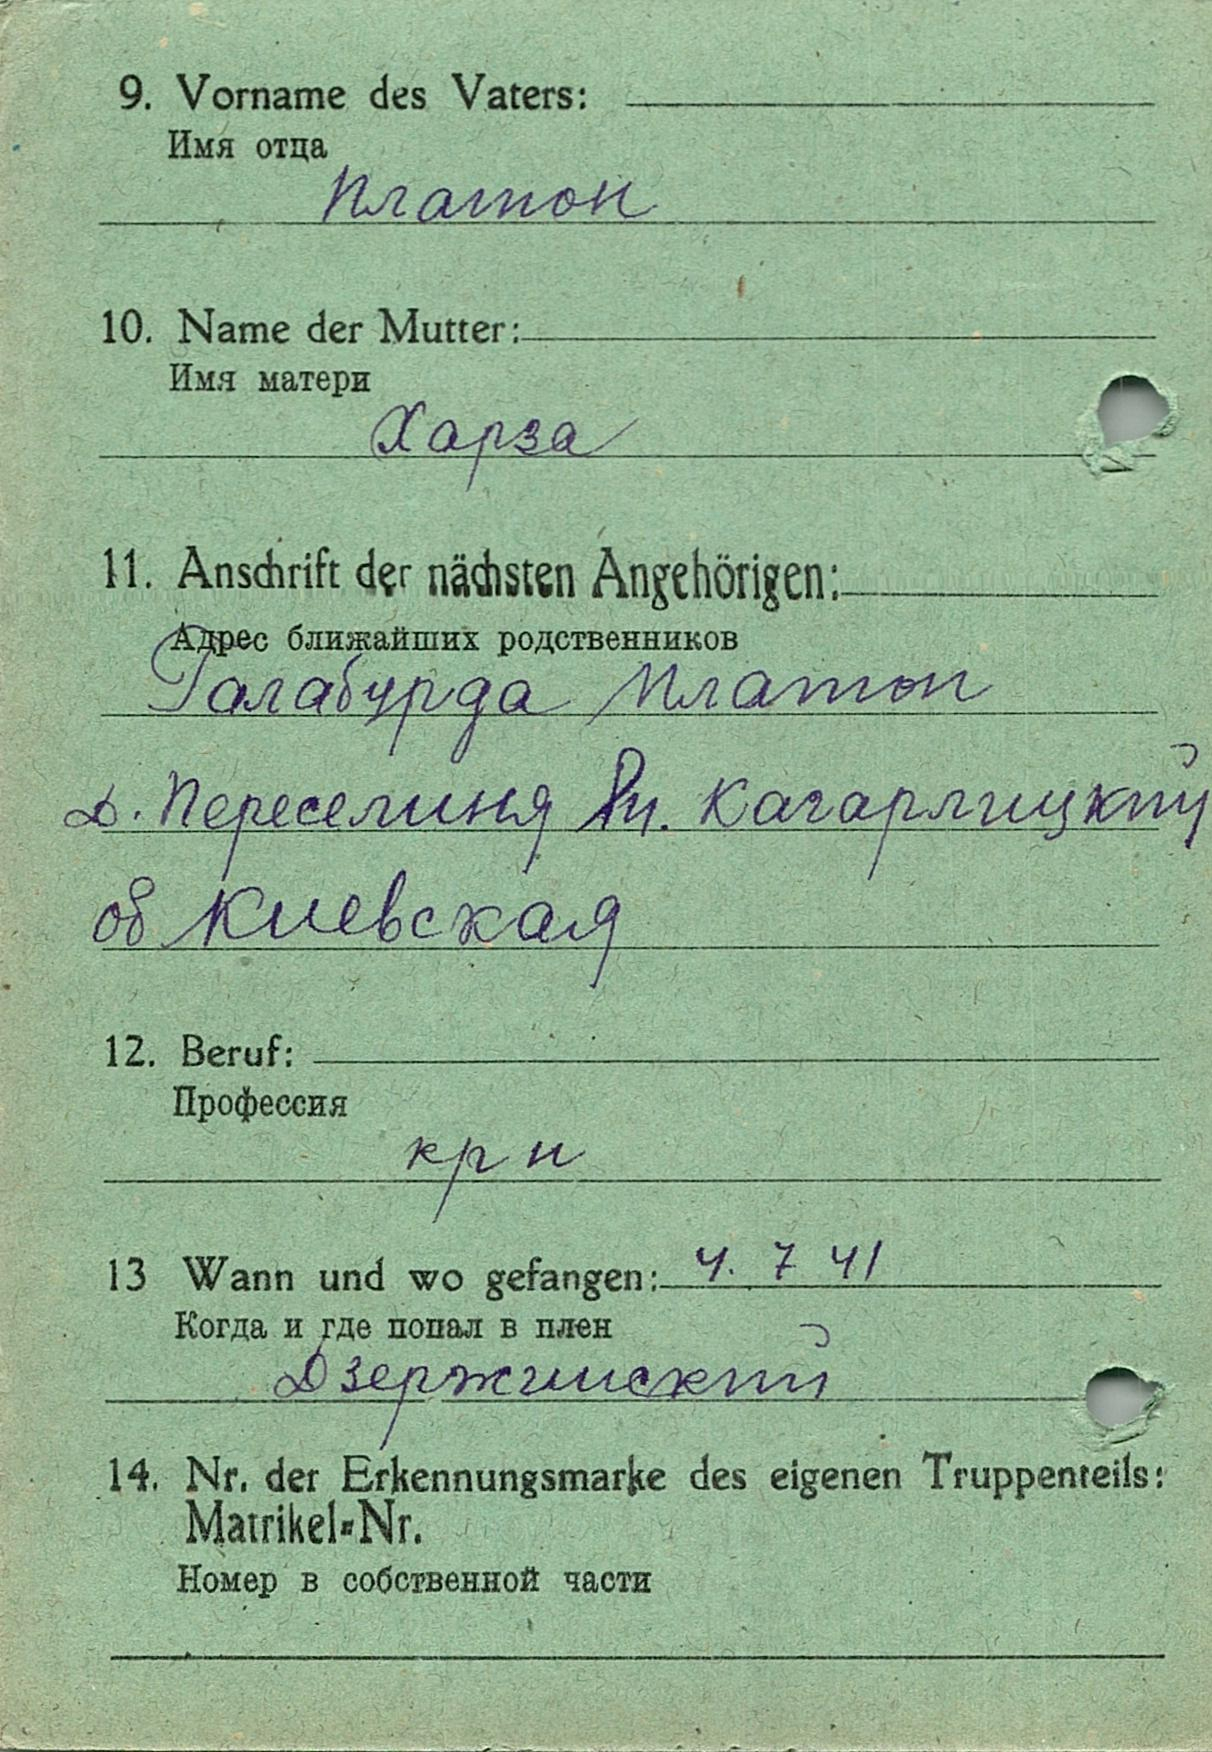 9. Vorname des Vaters:
Имя отца
Платон
10. Name der Mutter:
Имя матери
Харза
11. Anschrift der nächsten Angehörigen:
Адрес ближайших родственников
Галабурда Платон
д. Переселиня Рн. Кагарлицкий
об Киевская
12. Beruf:
Профессия
кр н
13 Wann und wo gefangen: 4. 7 41
Когда и где попал в плен
Дзержинский
14. Nr. der Erkennungsmarke des eigenen Truppenteils:
Matrikel-Nr.
Номер в собственной части